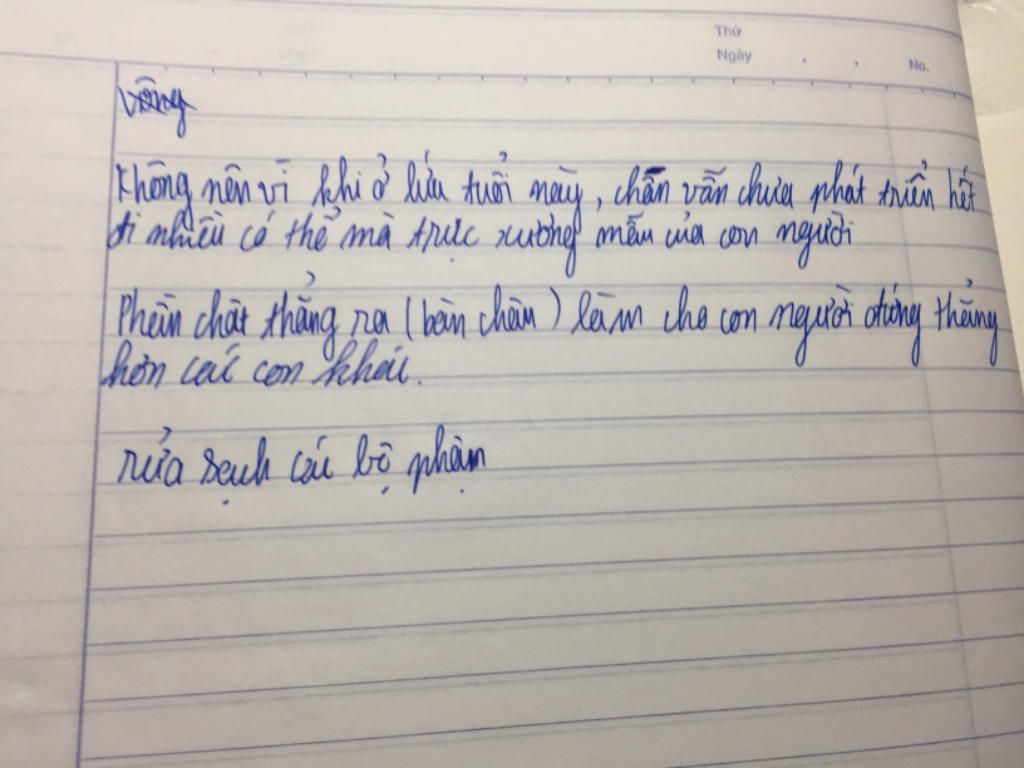 Thứ
Ngày . . No.
vông
Không nên vì khi ở lứa tuổi này, chân vẫn chưa phát triển hết
đi nhiều có thể mà trục xương mẫu của con người
Phần chât thẳng ra (bàn chân) làm cho con người đứng thẳng
hơn các con khác.
rửa sạch các bộ phận